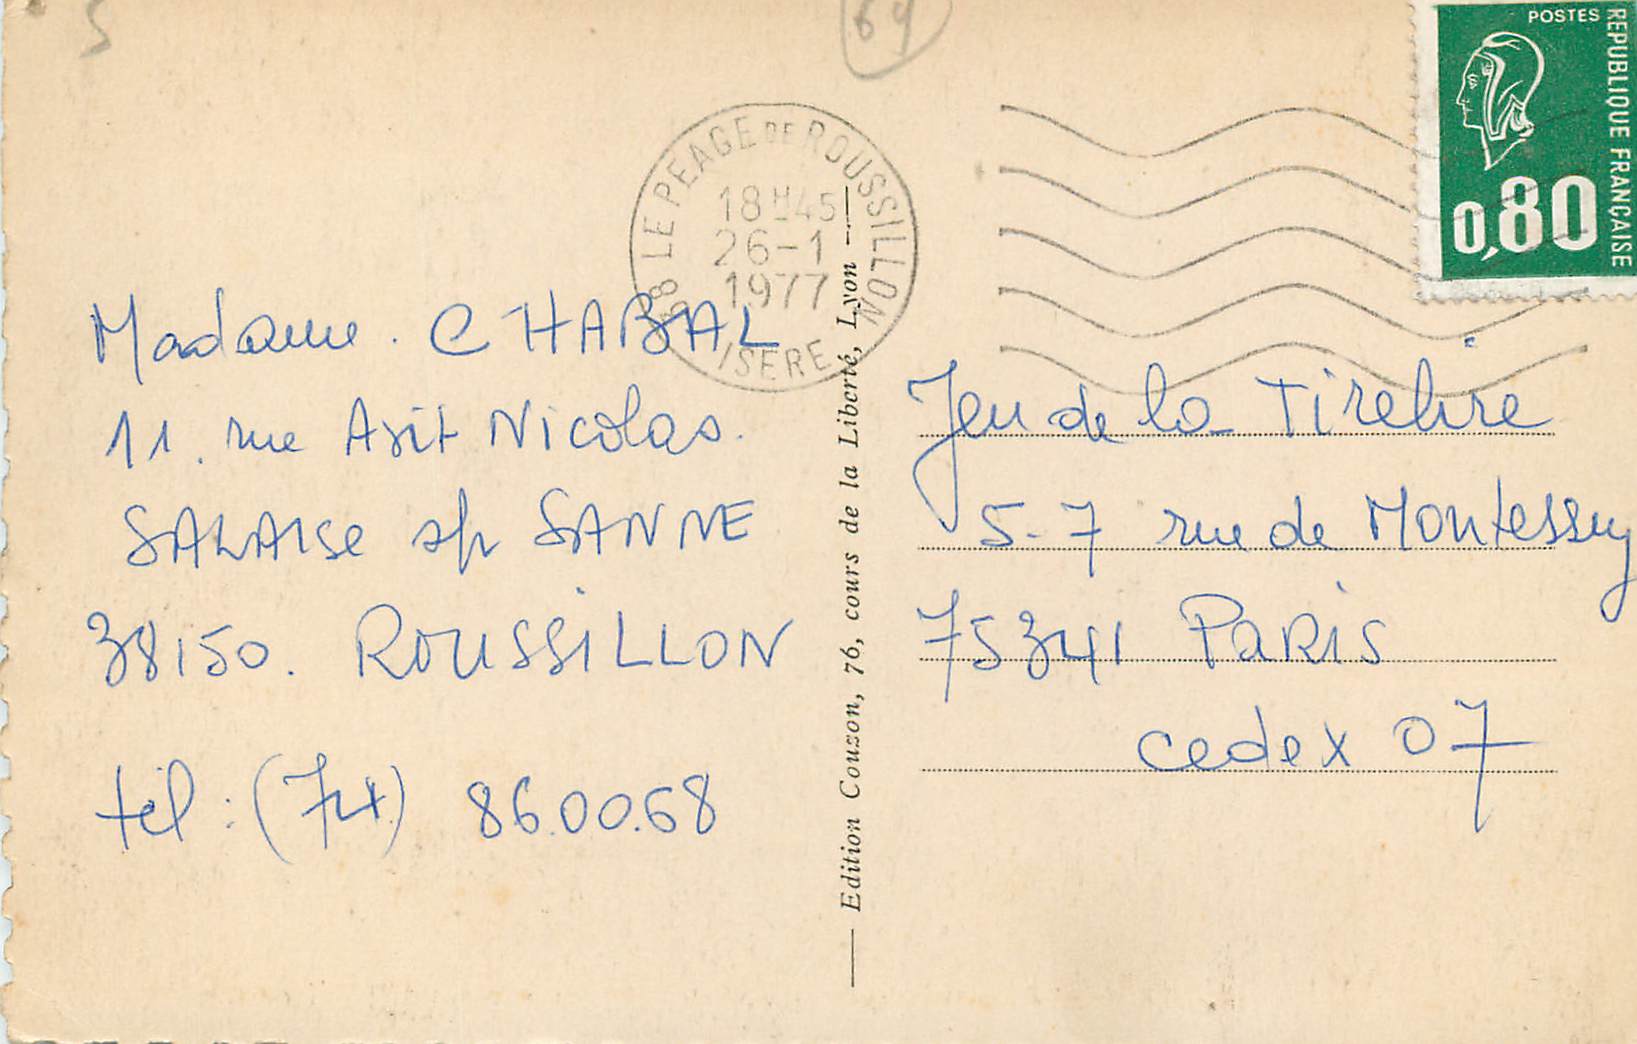 5
64
POSTES
REPUBLIQUE FRANÇAISE
0,80
38 LE PEAGE DE ROUSSILLON
18H45
26-1
1977
ISERE
Madame. CHABAL
11. rue Asit Nicolas.
SALAISE s/r SANNE
38150. ROUSSILLON
tél : (74) 86.00.68
Edition Couzon, 76, cours de la Liberté, Lyon
Jeu de la Tirelire
5-7 rue de Montessuy
75341 PARIS
cedex 07